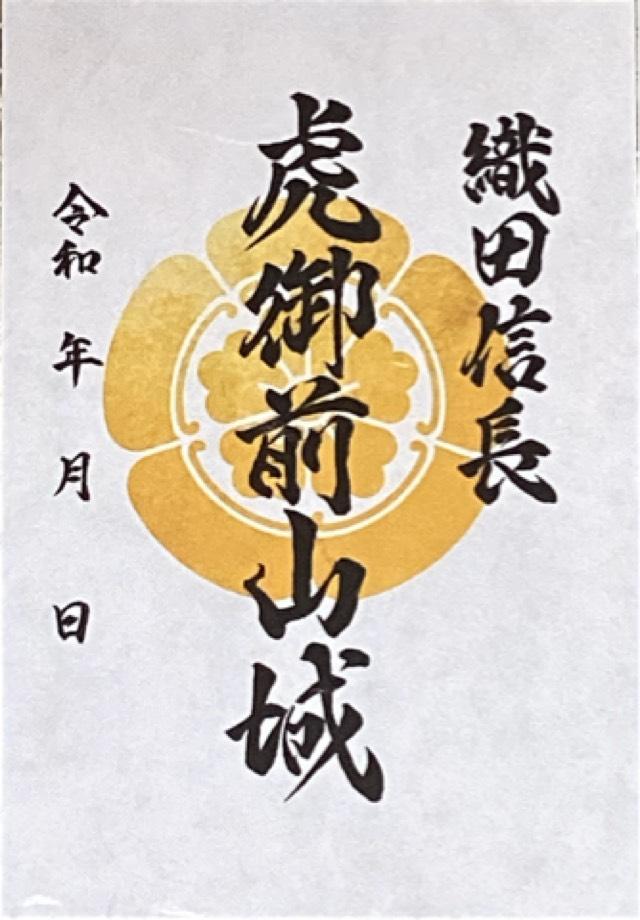 織田信長
虎御前山城
令和 年 月 日